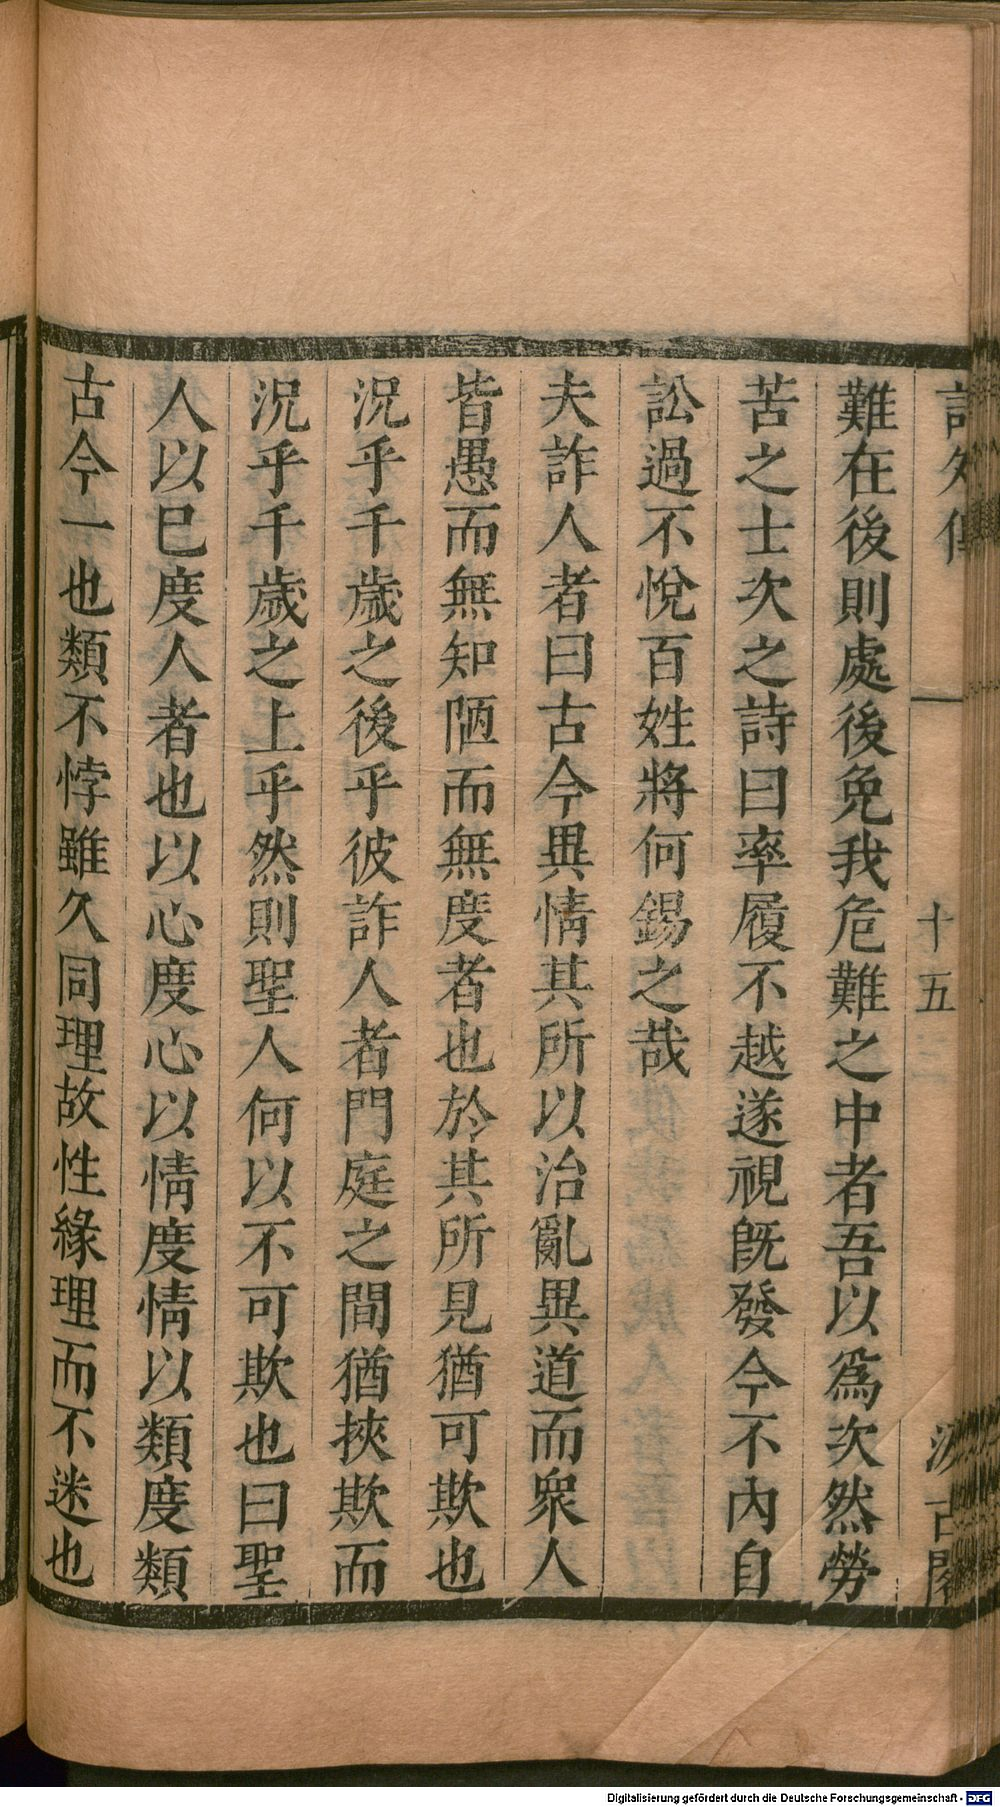 詩外傳
十五
汲古閣
難在後則處後免我危難之中者吾以爲次然勞
苦之士次之詩曰率履不越遂視旣發今不內自
訟過不悅百姓將何錫之哉
夫詐人者曰古今異情其所以治亂異道而衆人
皆愚而無知陋而無度者也於其所見猶可欺也
況乎千歲之後乎彼詐人者門庭之間猶挾欺而
況乎千歲之上乎然則聖人何以不可欺也曰聖
人以已度人者也以心度心以情度情以類度類
古今一也類不悖雖久同理故性緣理而不迷也
Digitalisierung gefördert durch die Deutsche Forschungsgemeinschaft - DFG